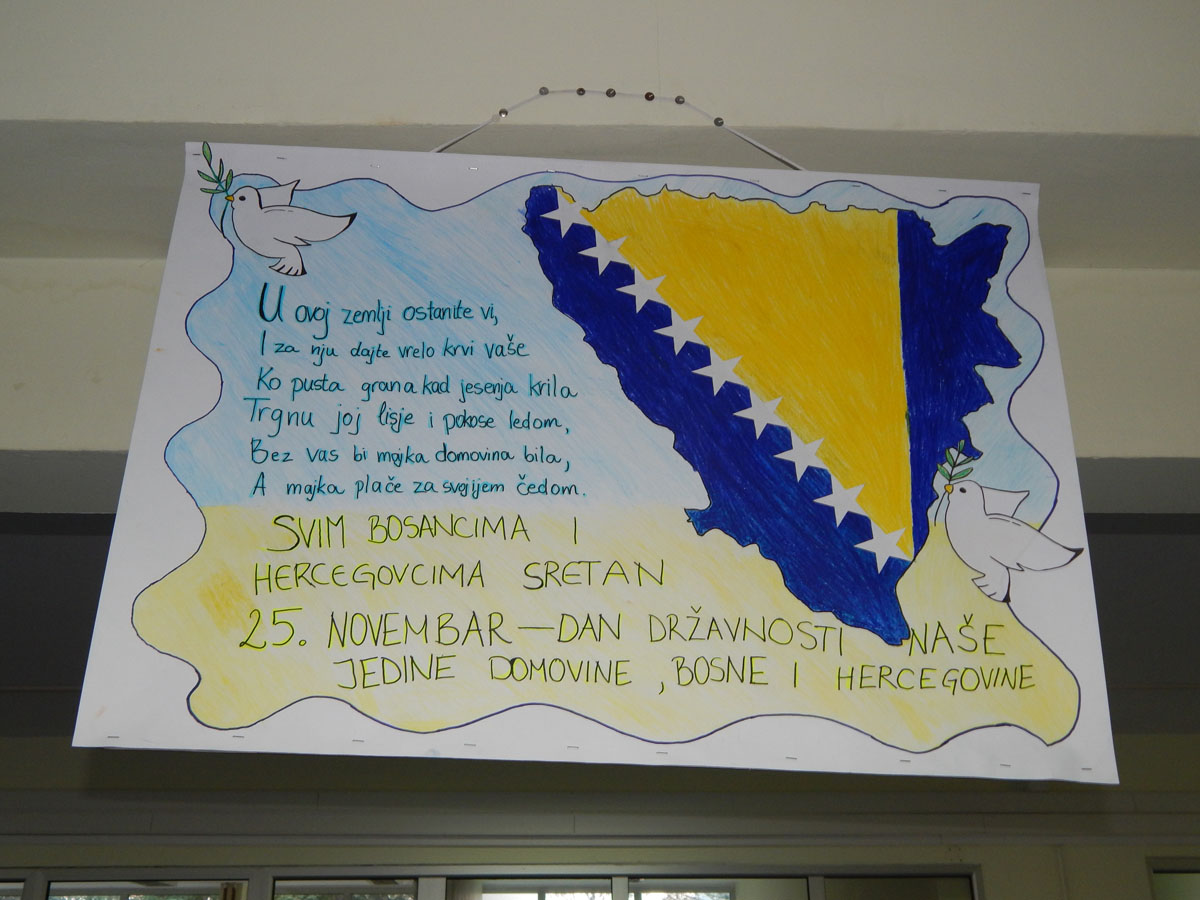 U ovoj zemlji ostanite vi,
I za nju dajte vrelo krvi vaše
Ko pusta grana kad jesenja krila
Trgnu joj lisje i pokose ledom,
Bez vas bi majka domovina bila,
A majka plače za svojijem čedom.
SVIM BOSANCIMA I
HERCEGOVCIMA SRETAN
25. NOVEMBAR – DAN DRŽAVNOSTI NAŠE
JEDINE DOMOVINE, BOSNE I HERCEGOVINE